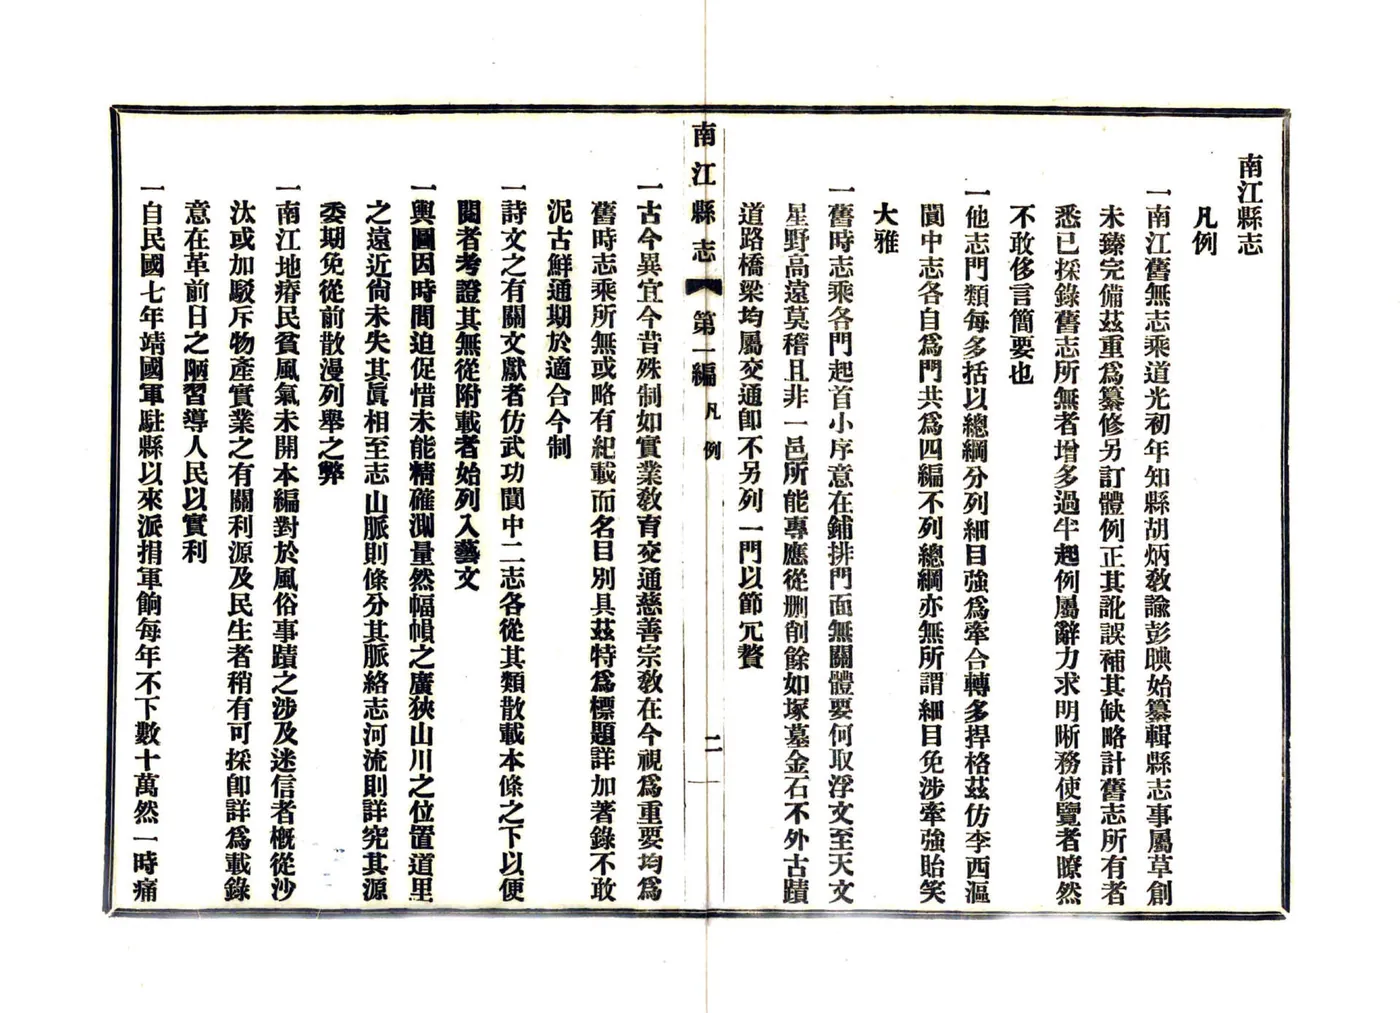 南江縣志
凡例
一南江舊無志乘道光初年知縣胡炳敎諭彭䀕始纂輯縣志事屬草創
未臻完備茲重爲纂修另訂體例正其訛誤補其缺略計舊志所有者
悉已採錄舊志所無者增多過半起例屬辭力求明晰務使覽者瞭然
不敢侈言簡要也
一他志門類每多括以總綱分列細目強爲牽合轉多捍格茲仿李西漚
閬中志各自爲門共爲四編不列總綱亦無所謂細目免涉牽強貽笑
大雅
一舊時志乘各門起首小序意在鋪排門面無關體要何取浮文至天文
星野高遠莫稽且非一邑所能專應從删削餘如塚墓金石不外古蹟
道路橋梁均屬交通卽不另列一門以節冗贅
南江縣志
第一編
凡例
二
一古今異宜今昔殊制如實業敎育交通慈善宗敎在今視爲重要均爲
舊時志乘所無或略有紀載而名目別具茲特爲標題詳加著錄不敢
泥古鮮通期於適合今制
一詩文之有關文獻者仿武功閬中二志各從其類散載本條之下以便
閱者考證其無從附載者始列入藝文
一輿圖因時間迫促惜未能精確測量然幅幀之廣狹山川之位置道里
之遠近尙未失其眞相至志山脈則條分其脈絡志河流則詳究其源
委期免從前散漫列舉之弊
一南江地瘠民貧風氣未開本編對於風俗事蹟之涉及迷信者槪從沙
汰或加駁斥物產實業之有關利源及民生者稍有可採卽詳爲載錄
意在革前日之陋習導人民以實利
一自民國七年靖國軍駐縣以來派捐軍餉每年不下數十萬然一時痛